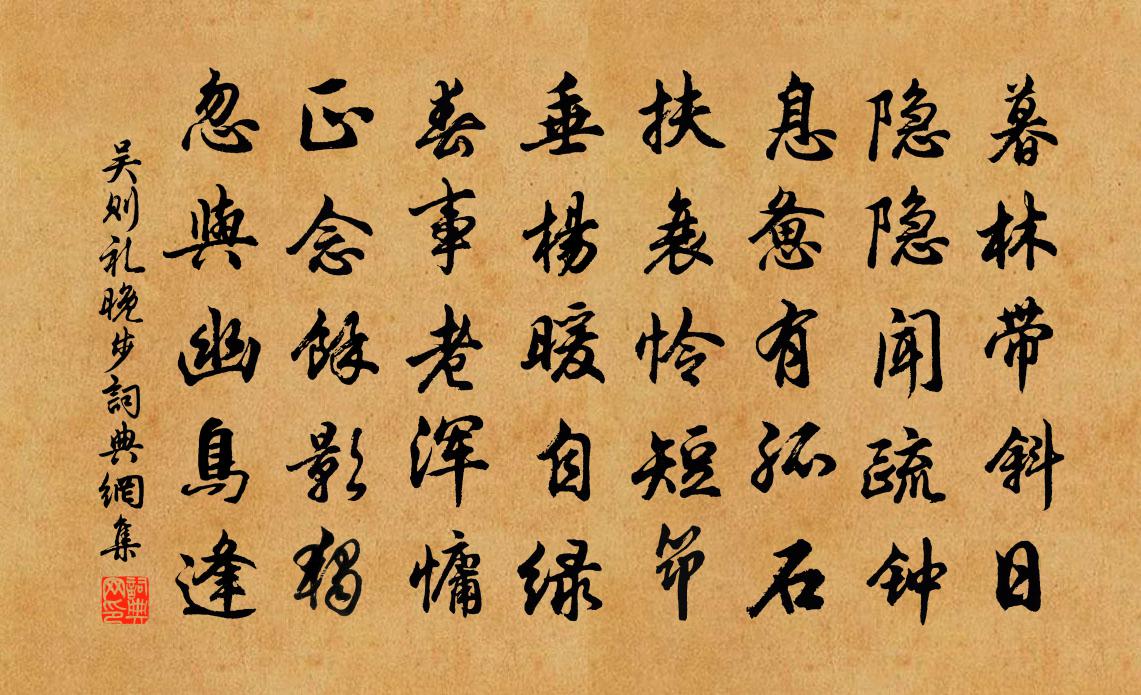 暮林带斜日
隐隐闻疏钟
息惫有孤石
扶衰怜短筇
垂楊暖自绿
春事老浑慵
正念馀影独
忽與幽鳥逢
吴则礼晚步詞典網集
詞典网印